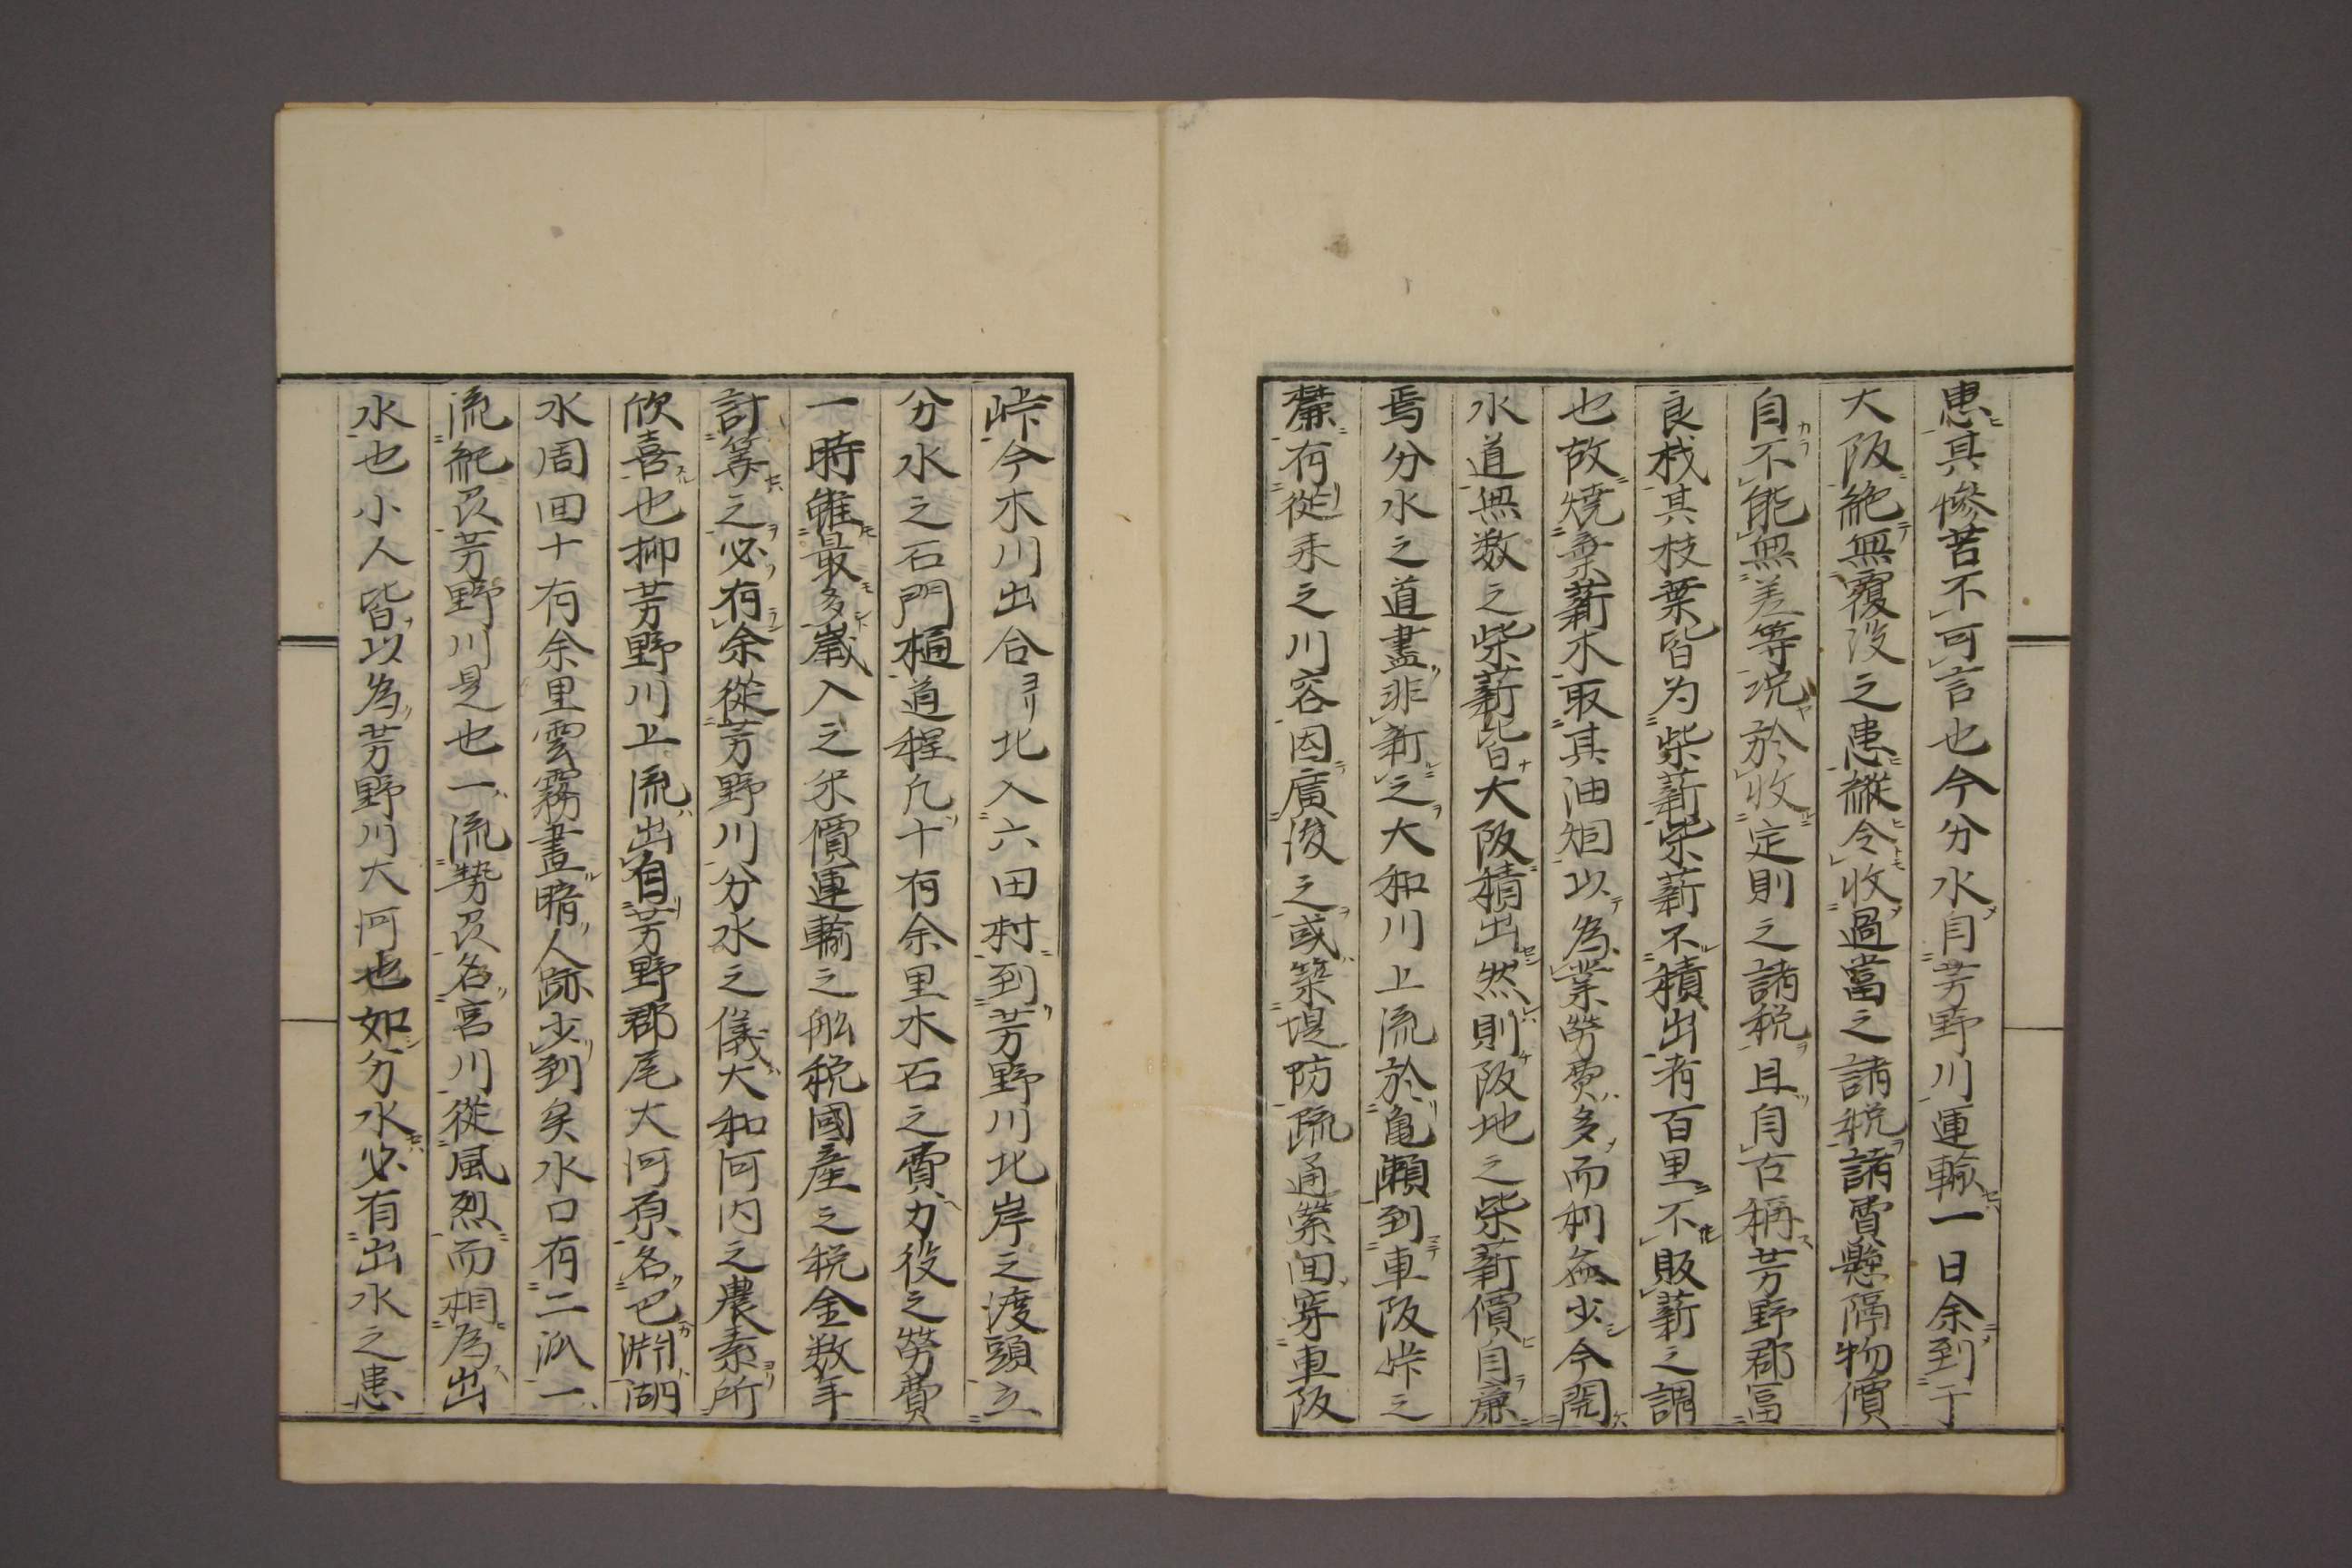 患其惨苦不可言也今分水自芳野川運輸一日余到于
大阪絶無覆没之患縦令收過當之諸税諸賣懸隔物價
自不能無差等况於收定則之諸税且自古稱芳野郡富
良材其枝葉皆为柴薪柴薪不積出者百里不販薪之謂
也故燒棄薪木取其油烟以為業勞費多而利益少今開
水道無数之柴薪皆大阪積出然則阪地之柴薪價自廉
焉分水之道盡非新之大和川上流於亀瀬到車阪峠之
麓有従来之川容因廣浚之或築堤防疏通縈回穿車阪
峠今木川出合ヨリ北入六田村到芳野川北岸之渡頭立
分水之石門樋道程凢十有余里水石之費力役之勞費
一時雖最多歳入之米價運輸之舩税國産之税金数年
計筭之必有余從芳野川分水之儀大和河内之農素所
欣喜也抑芳野川上流出自芳野郡尾大河原名巴淵湖
水周回十有余里雲霧晝暗人跡少到矣水口有二派一
流紀及芳野川是也一流勢及名宮川從風烈而相為出
水也小人皆以為芳野川大河也如分水必有出水之患